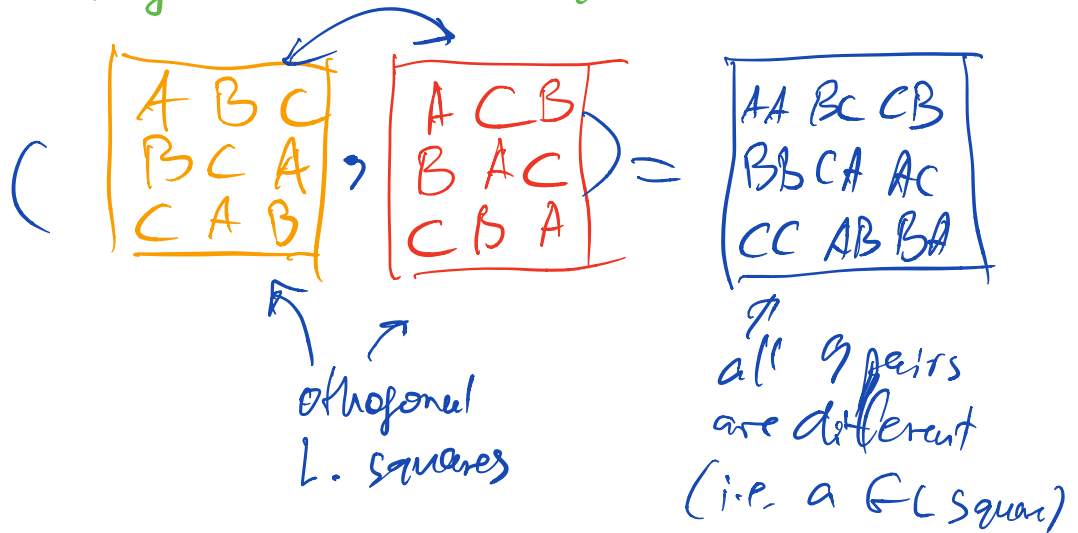 ( A B C , A C B ) = AA BC CB
B C A B A C BB CA AC
C A B C B A CC AB BA
othogonal
L. squares
all 9 pairs
are different
(i.e. a GL square)